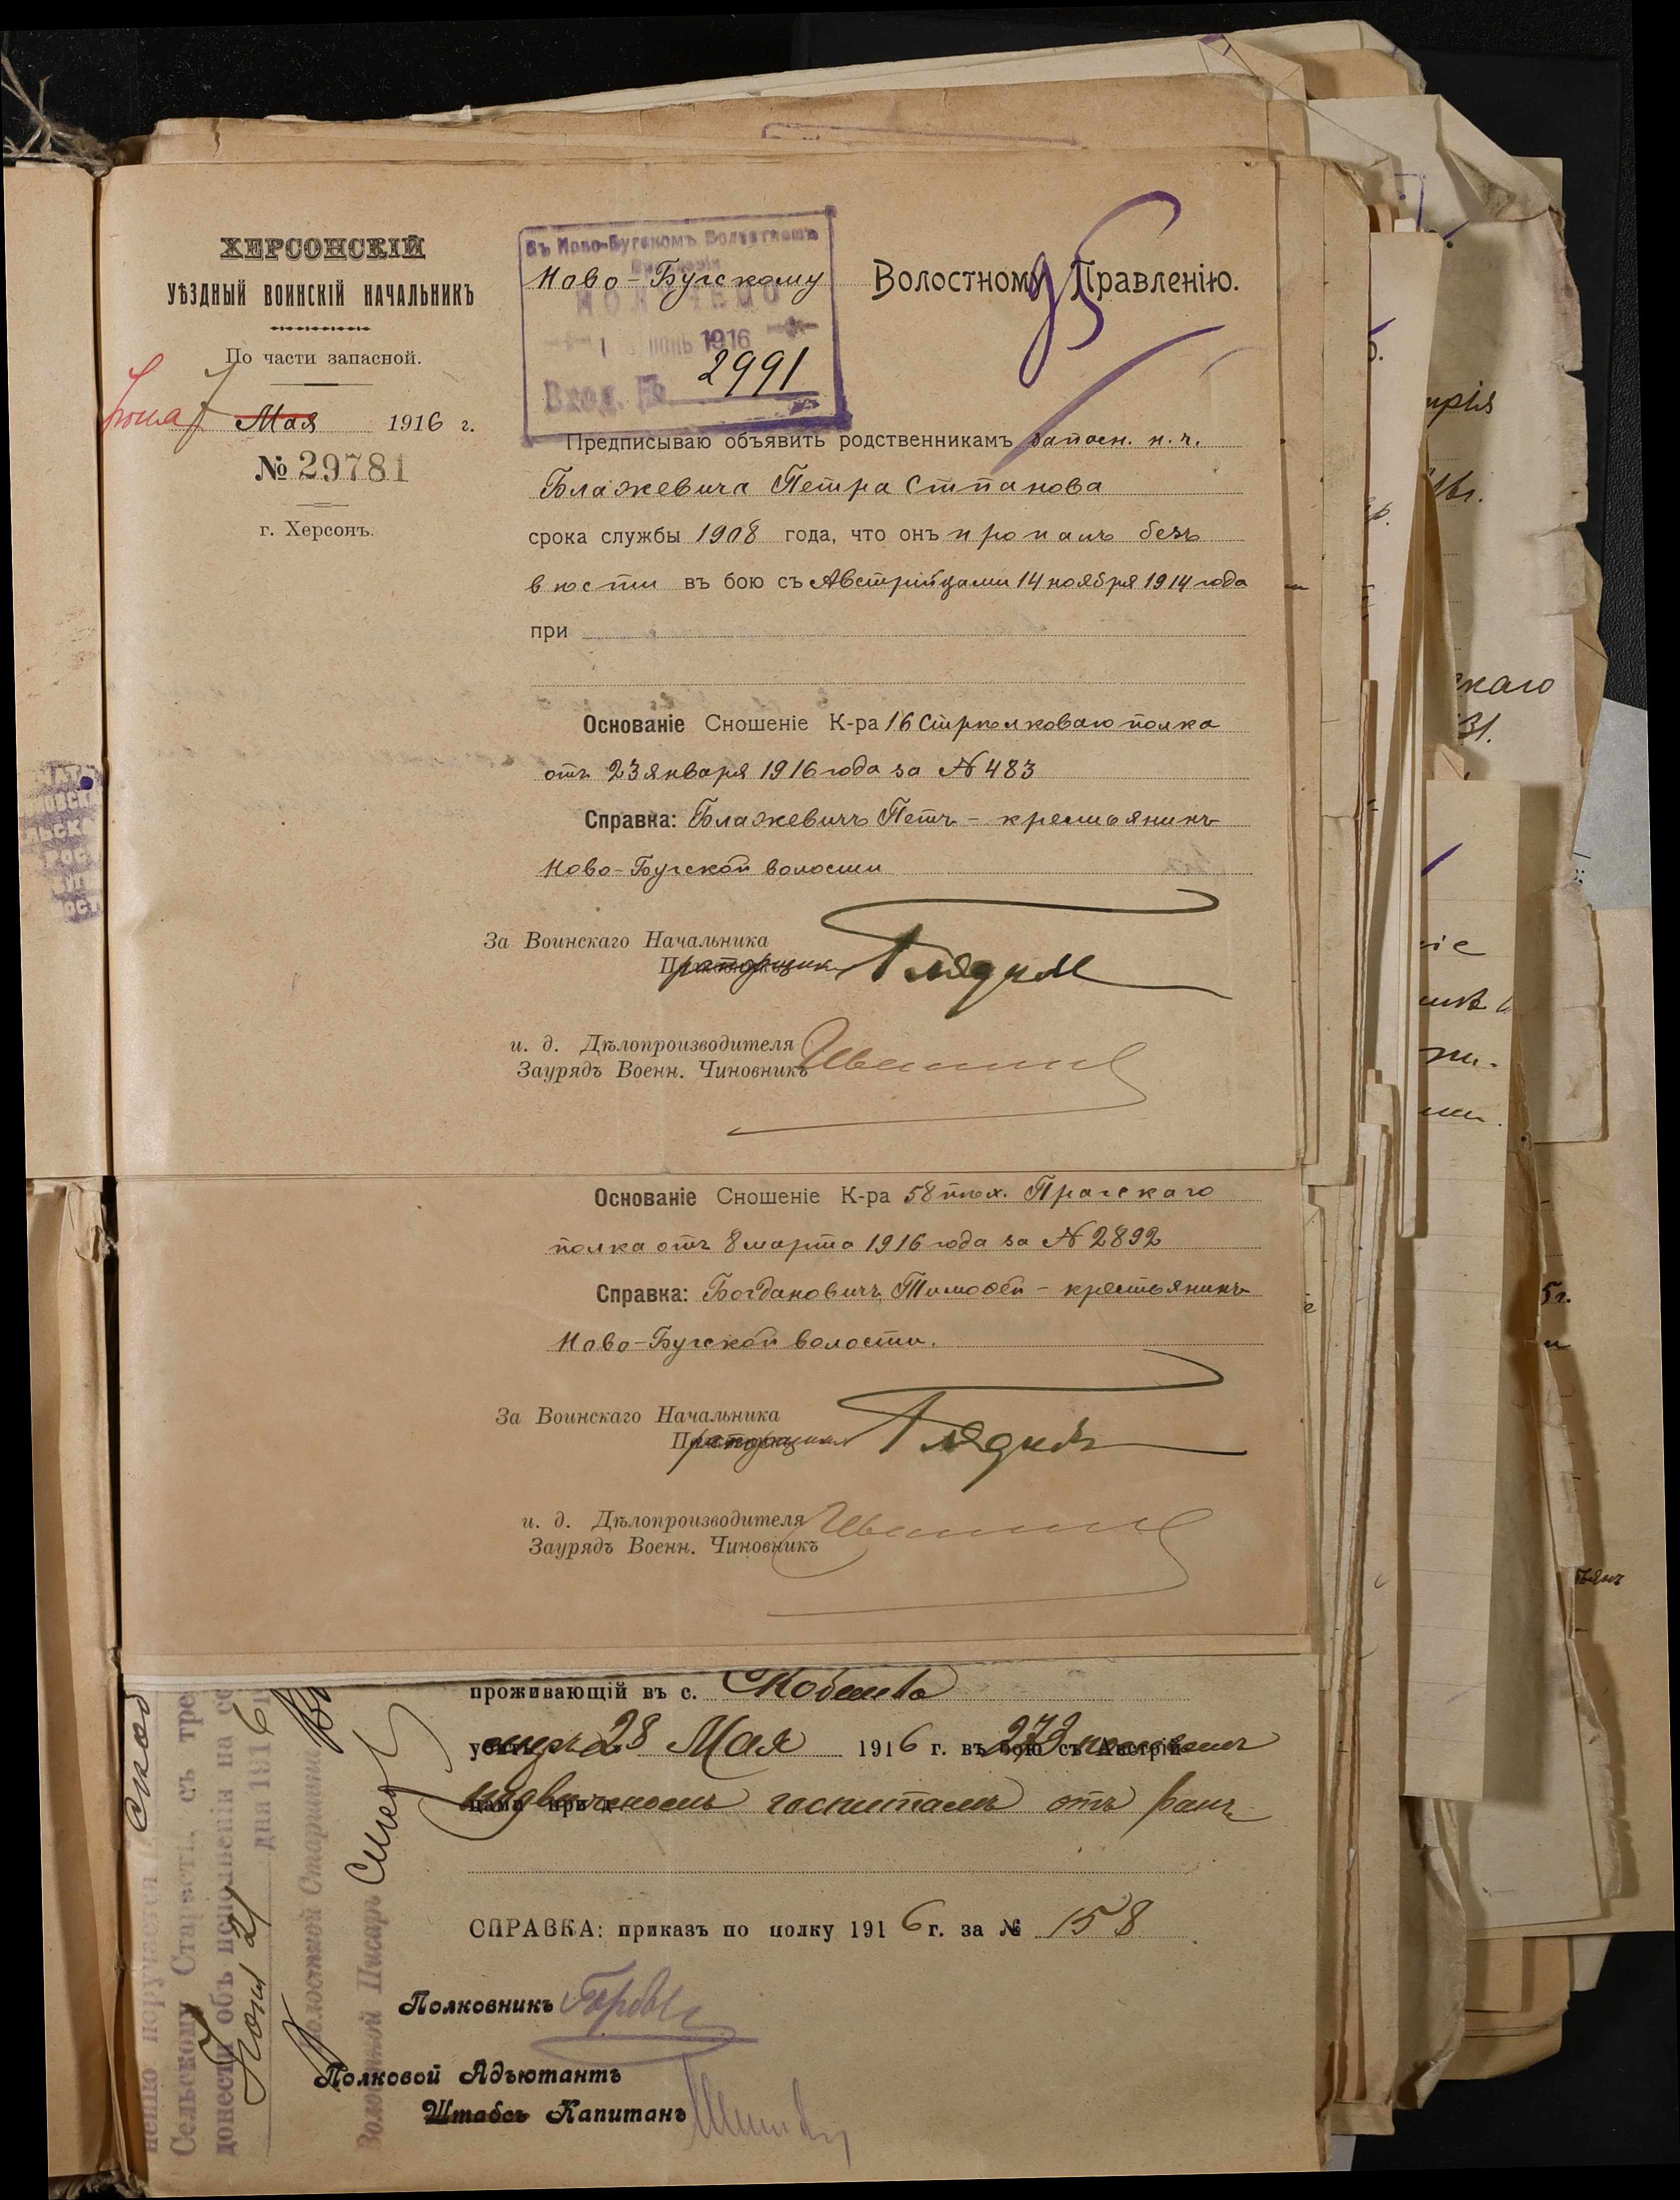 ХЕРСОНСКІЙ
УѢЗДНЫЙ ВОИНСКІЙ НАЧАЛЬНИКЪ
По части запасной.
Іюня 7 Мая 1916 г.
№ 29781
г. Херсонъ.
Въ Ново-Бугскомъ Волостномъ
Правленіи
ПОЛУЧЕНО
1916
Вход. № 2991
Ново-Бугскому Волостному Правленію.
95
Предписываю объявить родственникамъ запасн. н. ч.
Блажевича Петра Стпанова
срока службы 1908 года, что онъ пропалъ безъ
вѣсти въ бою съ Австрійцами 14 ноября 1914 года
при
Основаніе Сношеніе К-ра 16 Стрѣлковаго полка
отъ 23 января 1916 года за № 483
Справка: Блажевичъ Петъ - крестьянинъ
Ново-Бугской волости
За Воинскаго Начальника
Прапорщикъ
и. д. Дѣлопроизводителя
Заурядъ Военн. Чиновникъ
Основаніе Сношеніе К-ра 58 пѣх. Прагскаго
полка отъ 8 марта 1916 года за № 2892
Справка: Богдановичъ Тимофей - крестьянинъ
Ново-Бугской волости.
За Воинскаго Начальника
Прапорщикъ
и. д. Дѣлопроизводителя
Заурядъ Военн. Чиновникъ
проживающій въ с.
убитъ умеръ 28 Мая 1916 г. въ бою съ Австрій- 273 полевомъ
цами при д. подвижномъ госпиталѣ отъ ранъ
СПРАВКА: приказъ по полку 1916 г. за № 158
Полковникъ
Полковой Адъютантъ
Штабсъ Капитанъ
поручается
Сельскому Старостѣ, съ тре
донести объ исполненіи на се
Іюня 21 дня 1916 г.
Волостной Старшина
Волостной Писарь